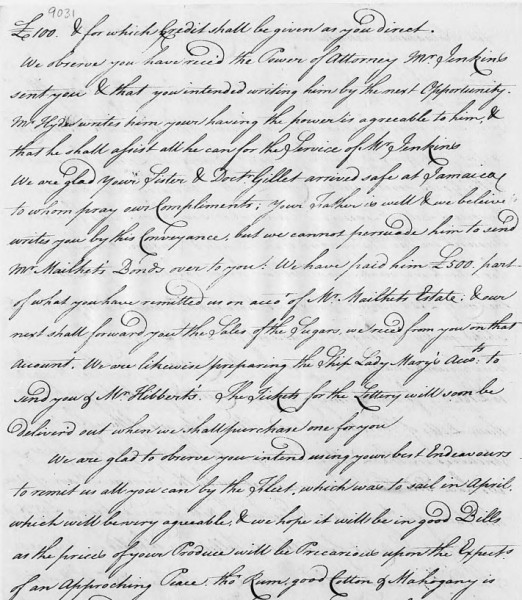 9031
£100. & for which Credit shall be given as you direct.
We observe you have recd the Power of Attorney Mr Jenkins
sent you & that you intended writing him by the next Opportunity.
Mr Hyde writes him your having the power is agreeable to him, &
that he shall assist all he can for the Service of Mr Jenkins
We are glad your Sister & Doctr Gillet arrived safe at Jamaica,
to whom pray our Compliments; Your Father is well & we believe
writes you by this Conveyance, but we cannot persuade him to send
Mr Mailhet's Bonds over to you. We have paid him £500. part
of what you have remitted us on acco.t of Mr Mailhets Estate; & our
next shall forward you the Sales of the Sugars, we recd from you on that
Account. We are likewise preparing the Ship Lady Mary's Acco.ts to
send you & Mr Hibbert's. The Tickets for the Lottery will soon be
deliverd out when we shall purchase one for you
We are glad to observe you intend using your best Endeavours
to remit us all you can by the Fleet, which was to sail in April,
which will be very agreeable, & we hope it will be in good Bills
as the prices of your Produce will be Precarious upon the Expects
of an Approching Peace, tho' Rum, good Cotton & Mahogany is